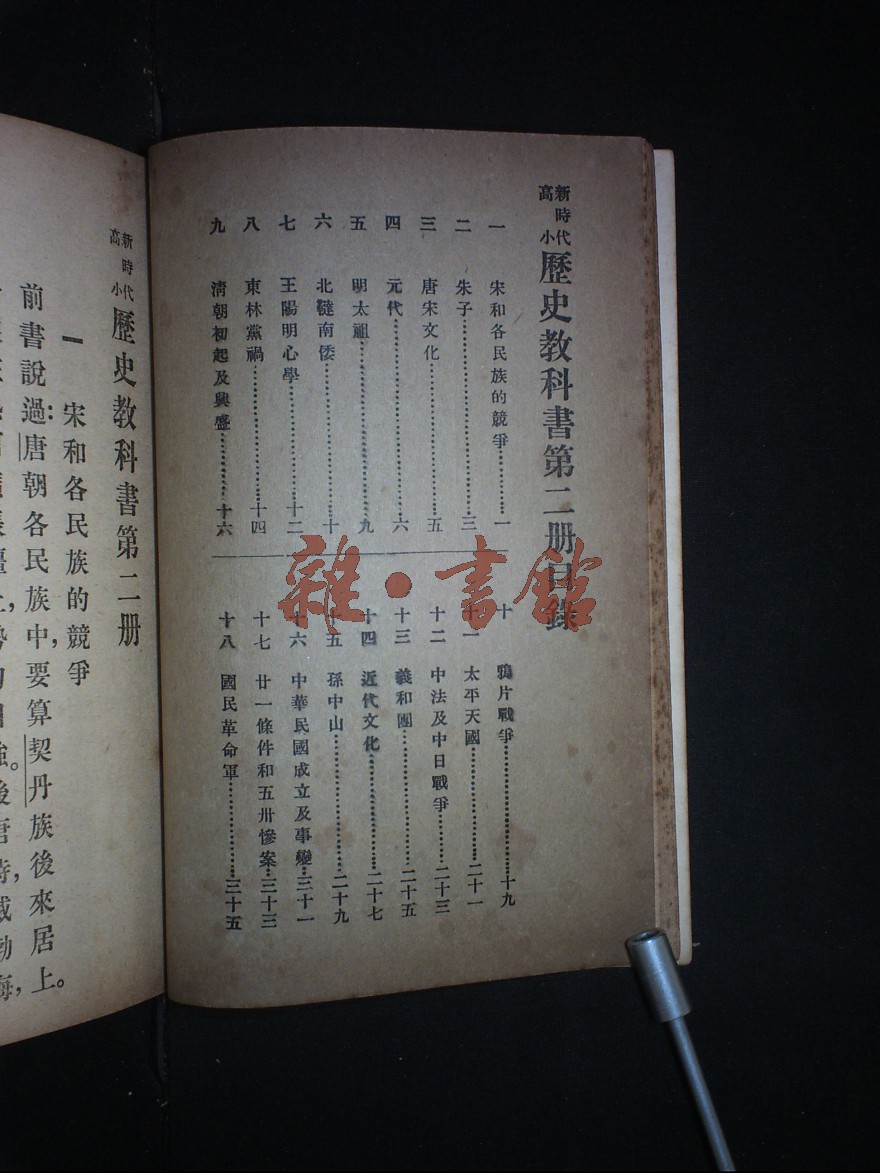 新時代高小歷史教科書第二册目錄
一 宋和各民族的競爭…………一
二 朱子…………三
三 唐宋文化…………五
四 元代…………六
五 明太祖…………九
六 北韃南倭…………十
七 王陽明心學…………十二
八 東林黨禍…………十四
九 清朝初起及興盛…………十六
十 鴉片戰爭…………十九
十一 太平天國…………二十一
十二 中法及中日戰爭…………二十三
十三 義和團…………二十五
十四 近代文化…………二十七
十五 孫中山…………二十九
十六 中華民國成立及事變…三十一
十七 廿一條件和五卅慘案…三十三
十八 國民革命軍…………三十五
雜·書館
新時代高小歷史教科書第二册
一 宋和各民族的競爭
前書說過：唐朝各民族中，要算契丹族後來居上。